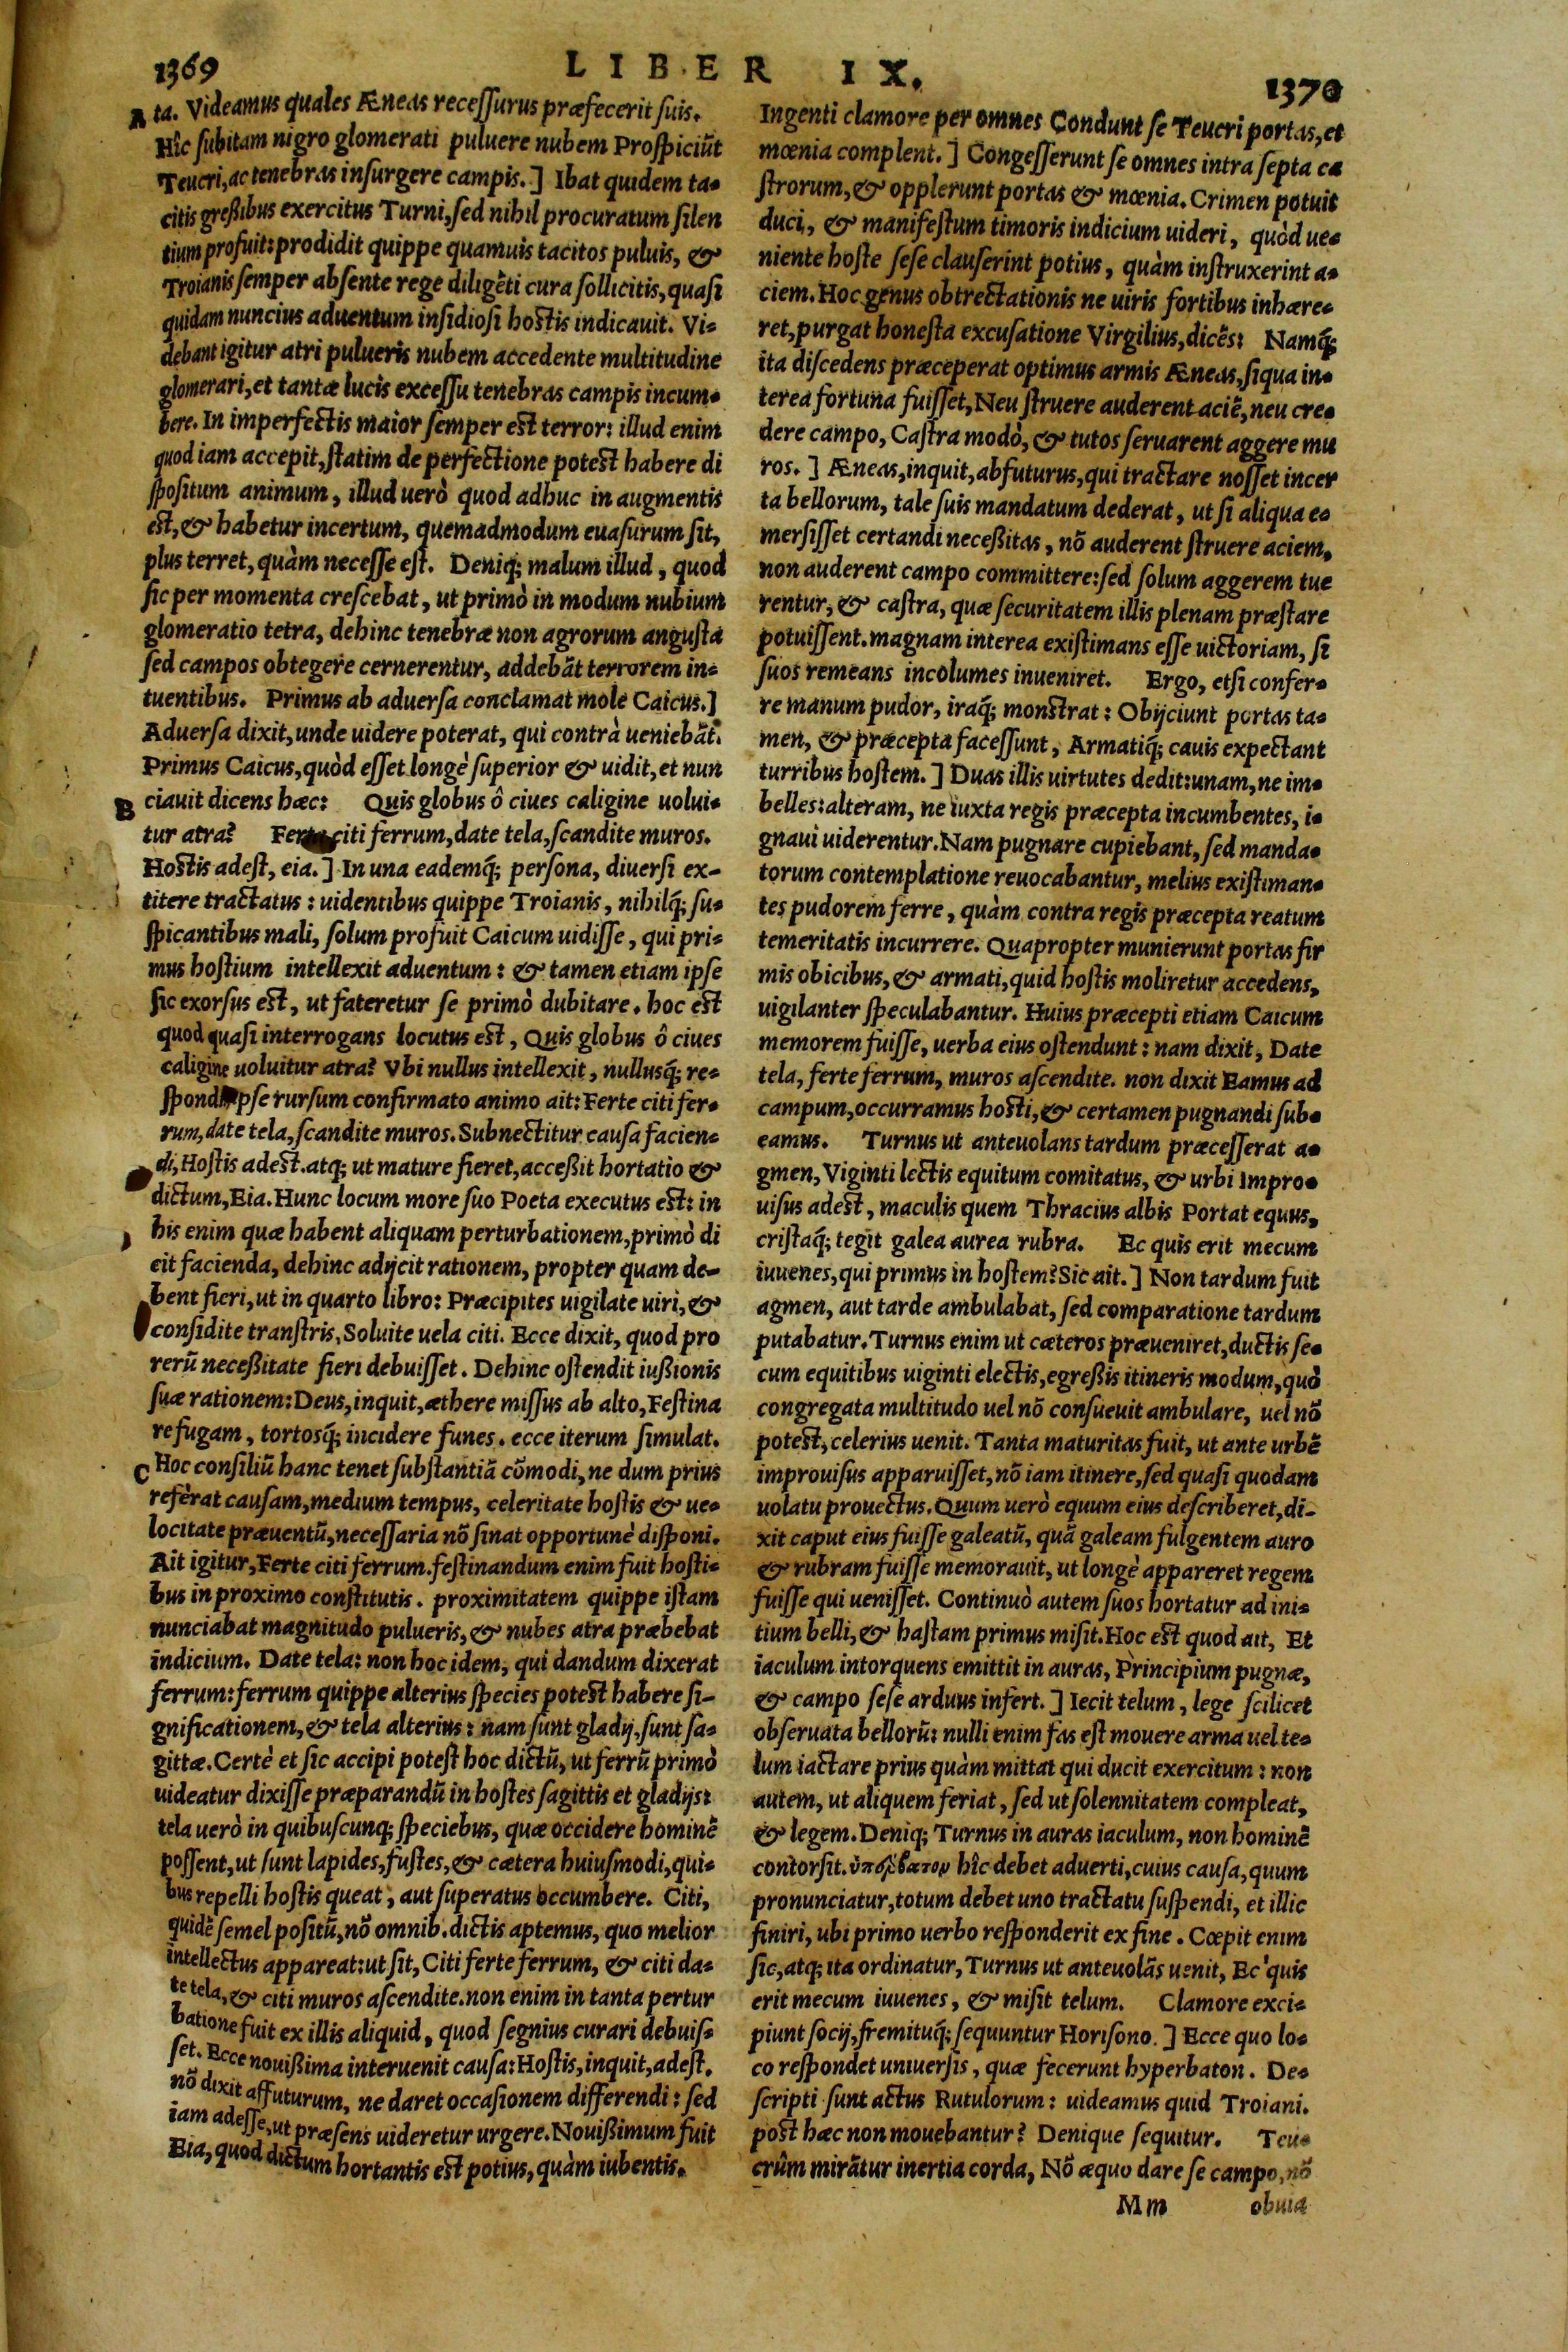 1369
LIBER IX.
1370
A ta. Videamus quales Æneas recessurus præfecerit suis.
Hîc subitam nigro glomerati puluere nubem Prospiciũt
Teucri, ac tenebras insurgere campis.] Ibat quidem ta-
citis greßibus exercitus Turni, sed nihil procuratum silen
tium profuit: prodidit quippe quamuis tacitos puluis, &
Troianis semper absente rege diligẽti cura sollicitis, quasi
quidam nuncius aduentum insidiosi hostis indicauit. Vi-
debant igitur atri pulueris nubem accedente multitudine
glomerari, et tantæ lucis excessu tenebras campis incum-
bere. In imperfectis maior semper est terror: illud enim
quod iam accepit, statim de perfectione potest habere di
spositum animum, illud uerò quod adhuc in augmentis
est, & habetur incertum, quemadmodum euasurum sit,
plus terret, quàm necesse est. Deniq; malum illud, quod
sic per momenta crescebat, ut primò in modum nubium
glomeratio tetra, dehinc tenebræ non agrorum angusta
sed campos obtegere cernerentur, addebãt terrorem in-
tuentibus. Primus ab aduersa conclamat mole Caicus.]
Aduersa dixit, unde uidere poterat, qui contrà ueniebãt.
Primus Caicus, quòd esset longè superior & uidit, et nun
B ciauit dicens hæc: Quis globus ô ciues caligine uolui-
tur atra? Ferte citi ferrum, date tela, scandite muros.
Hostis adest, eia.] In una eademq́; persona, diuersi ex-
titere tractatus: uidentibus quippe Troianis, nihilq́; su-
spicantibus mali, solum profuit Caicum uidisse, qui pri-
mus hostium intellexit aduentum: & tamen etiam ipse
sic exorsus est, ut fateretur se primò dubitare. hoc est
quod quasi interrogans locutus est, Quis globus ô ciues
caligine uoluitur atra? Vbi nullus intellexit, nullusq́; re-
spond pse rursum confirmato animo ait: Ferte citi fer-
rum, date tela, scandite muros. Subnectitur causa facien-
di, Hostis adest. atq; ut mature fieret, acceßit hortatio &
dictum, Eia. Hunc locum more suo Poeta executus est: in
his enim quæ habent aliquam perturbationem, primò di
cit facienda, dehinc adijcit rationem, propter quam de-
bent fieri, ut in quarto libro: Præcipites uigilate uiri, &
considite transtris, Soluite uela citi. Ecce dixit, quod pro
rerũ neceßitate fieri debuisset. Dehinc ostendit iußionis
suæ rationem: Deus, inquit, æthere missus ab alto, Festina
re fugam, tortosq́; incidere funes. ecce iterum simulat.
C Hoc consiliũ hanc tenet substantiã cõmodi, ne dum prius
referat causam, medium tempus, celeritate hostis & ue-
locitate præuentũ, necessaria nõ sinat opportunè disponi.
Ait igitur, Ferte citi ferrum. festinandum enim fuit hosti-
bus in proximo constitutis. proximitatem quippe istam
nunciabat magnitudo pulueris, & nubes atra præbebat
indicium. Date tela: non hoc idem, qui dandum dixerat
ferrum: ferrum quippe alterius species potest habere si-
gnificationem, & tela alterius: nam sunt gladij, sunt sa-
gittæ. Certè et sic accipi potest hoc dictũ, ut ferrũ primò
uideatur dixisse præparandũ in hostes sagittis et gladijs:
tela uerò in quibuscunq; speciebus, quæ occidere hominẽ
possent, ut sunt lapides, fustes, & cætera huiusmodi, qui-
bus repelli hostis queat, aut superatus occumbere. Citi,
quidẽ semel positũ, nõ omnib. dictis aptemus, quo melior
intellectus appareat: ut sit, Citi ferte ferrum, & citi da-
te tela, & citi muros ascendite. non enim in tanta pertur
batione fuit ex illis aliquid, quod segnius curari debuis-
set. Ecce nouißima interuenit causa: Hostis, inquit, adest.
nõ dixit affuturum, ne daret occasionem differendi: sed
iam adesse, ut præsens uideretur urgere. Nouißimum fuit
Eia, quod dictum hortantis est potius, quàm iubentis.
Ingenti clamore per omnes Condunt se Teucri portas, et
mœnia complent.] Congesserunt se omnes intra septa ca
strorum, & opplerunt portas & mœnia. Crimen potuit
duci, & manifestum timoris indicium uideri, quòd ue-
niente hoste sese clauserint potius, quàm instruxerint a-
ciem. Hoc genus obtrectationis ne uiris fortibus inhære-
ret, purgat honesta excusatione Virgilius, dicẽs: Namq́;
ita discedens præceperat optimus armis Æneas, siqua in-
terea fortuna fuisset, Neu struere auderent aciẽ, neu cre-
dere campo, Castra modò, & tutos seruarent aggere mu
ros.] Æneas, inquit, abfuturus, qui tractare nosset incer
ta bellorum, tale suis mandatum dederat, ut si aliqua e-
mersisset certandi neceßitas, nõ auderent struere aciem,
non auderent campo committere: sed solum aggerem tue
rentur, & castra, quæ securitatem illis plenam præstare
potuissent. magnam interea existimans esse uictoriam, si
suos remeans incolumes inueniret. Ergo, etsi confer-
re manum pudor, iraq́; monstrat: Obijciunt portas ta-
men, & præcepta facessunt, Armatiq́; cauis expectant
turribus hostem.] Duas illis uirtutes dedit: unam, ne im-
belles: alteram, ne iuxta regis præcepta incumbentes, i-
gnaui uiderentur. Nam pugnare cupiebant, sed manda-
torum contemplatione reuocabantur, melius existiman-
tes pudorem ferre, quàm contra regis præcepta reatum
temeritatis incurrere. Quapropter munierunt portas fir
mis obicibus, & armati, quid hostis moliretur accedens,
uigilanter speculabantur. Huius præcepti etiam Caicum
memorem fuisse, uerba eius ostendunt: nam dixit, Date
tela, ferte ferrum, muros ascendite. non dixit Eamus ad
campum, occurramus hosti, & certamen pugnandi sub-
eamus. Turnus ut anteuolans tardum præcesserat a-
gmen, Viginti lectis equitum comitatus, & urbi Impro-
uisus adest, maculis quem Thracius albis Portat equus,
cristaq́; tegit galea aurea rubra. Ec quis erit mecum
iuuenes, qui primus in hostem? Sic ait.] Non tardum fuit
agmen, aut tarde ambulabat, sed comparatione tardum
putabatur. Turnus enim ut cæteros præueniret, ductis se-
cum equitibus uiginti electis, egreßis itineris modum, quò
congregata multitudo uel nõ consueuit ambulare, uel nõ
potest, celerius uenit. Tanta maturitas fuit, ut ante urbẽ
improuisus apparuisset, nõ iam itinere, sed quasi quodam
uolatu prouectus. Quum uerò equum eius describeret, di-
xit caput eius fuisse galeatũ, quã galeam fulgentem auro
& rubram fuisse memorauit, ut longè appareret regem
fuisse qui uenisset. Continuò autem suos hortatur ad ini-
tium belli, & hastam primus misit. Hoc est quod ait, Et
iaculum intorquens emittit in auras, Principium pugnæ,
& campo sese arduus infert.] Iecit telum, lege scilicet
obseruata bellorũ: nulli enim fas est mouere arma uel te-
lum iactare prius quàm mittat qui ducit exercitum: non
autem, ut aliquem feriat, sed ut solennitatem compleat,
& legem. Deniq; Turnus in auras iaculum, non hominẽ
contorsit. ὑπέρβατον hîc debet aduerti, cuius causa, quum
pronunciatur, totum debet uno tractatu suspendi, et illic
finiri, ubi primo uerbo responderit ex fine. Cœpit enim
sic, atq; ita ordinatur, Turnus ut anteuolãs uenit, Ec quis
erit mecum iuuenes, & misit telum. Clamore exci-
piunt socij, fremituq́; sequuntur Horisono.] Ecce quo lo-
co respondet uniuersis, quæ fecerunt hyperbaton. De-
scripti sunt actus Rutulorum: uideamus quid Troiani.
post hæc non mouebantur? Denique sequitur. Teu-
crûm mirãtur inertia corda, Nõ æquo dare se campo, nõ
Mm obuia